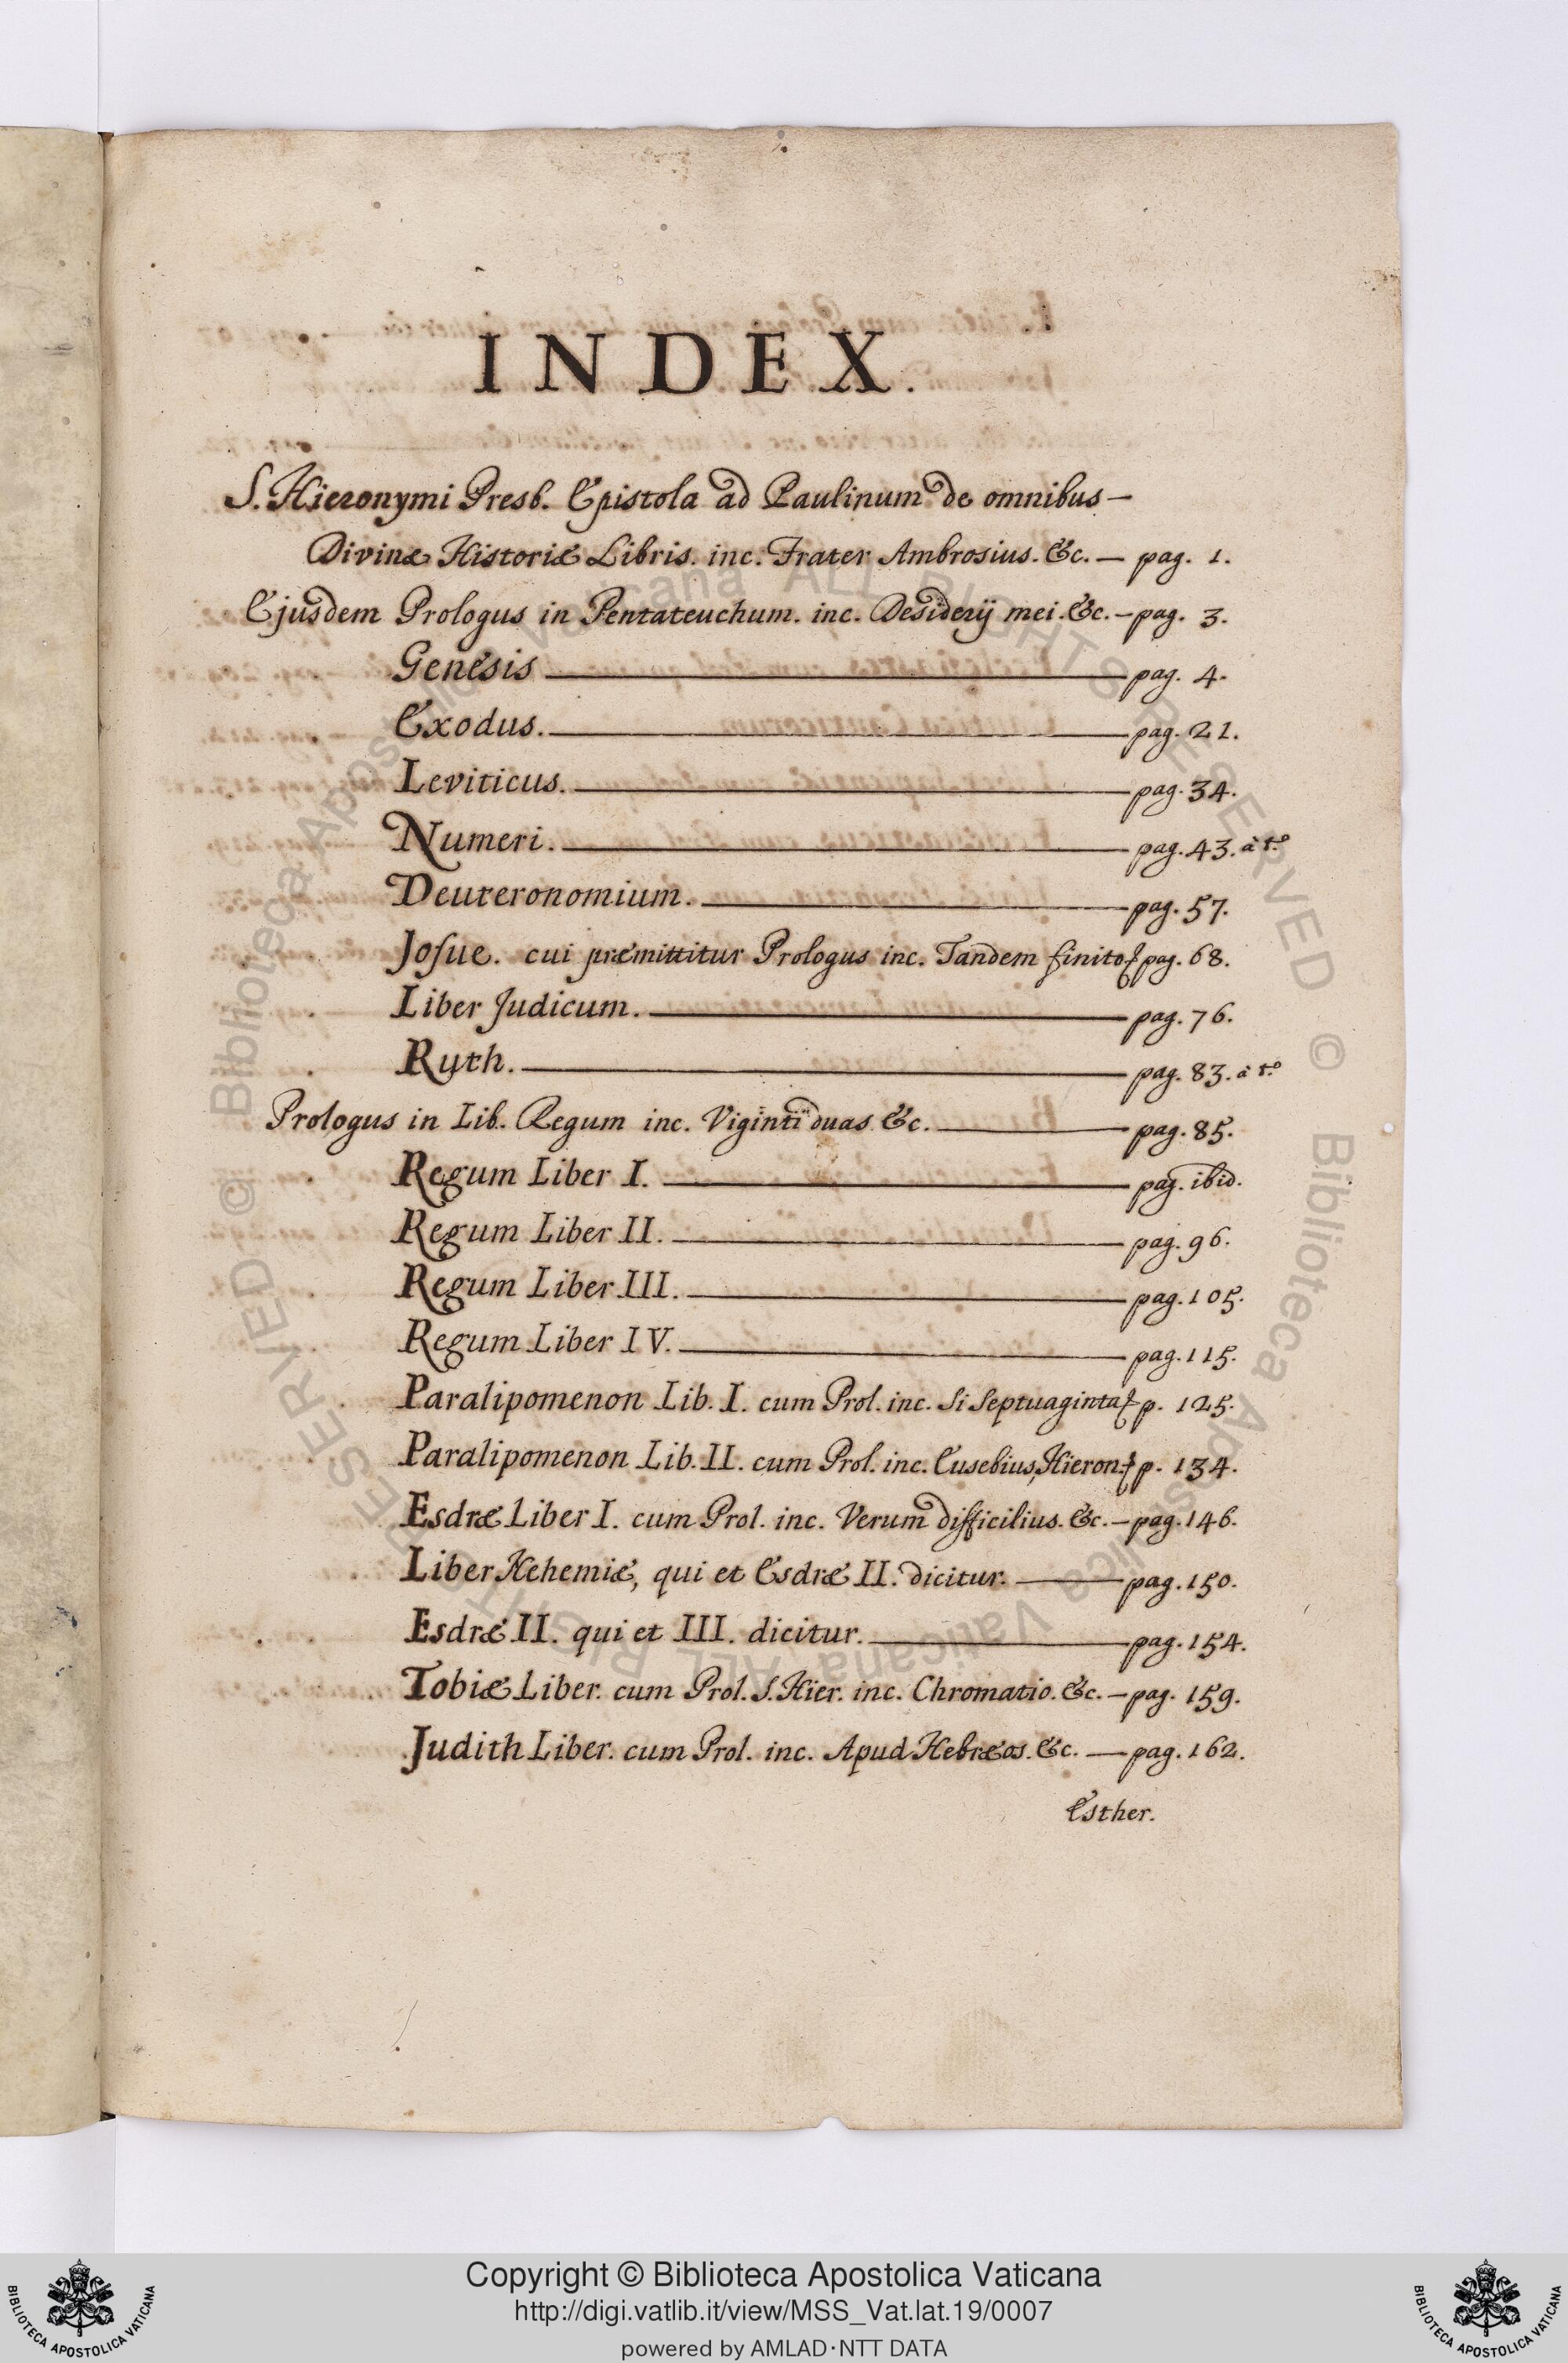 INDEX.
S. Hieronymi Presb. Epistola ad Paulinum de omnibus —
Divinæ Historiæ Libris. inc. Frater Ambrosius. &c. — pag. 1.
Ejusdem Prologus in Pentateuchum. inc. Desiderij mei. &c. — pag. 3.
Genesis — pag. 4.
Exodus. — pag. 21.
Leviticus. — pag. 34.
Numeri. — pag. 43. à t.º
Deuteronomium. — pag. 57.
Josue. cui præmittitur Prologus inc. Tandem finito pag. 68.
Liber Judicum. — pag. 76.
Ruth. — pag. 83. à t.º
Prologus in Lib. Regum inc. Viginti duas &c. — pag. 85.
Regum Liber I. — pag. ibid.
Regum Liber II. — pag. 96.
Regum Liber III. — pag. 105.
Regum Liber IV. — pag. 115.
Paralipomenon Lib. I. cum Prol. inc. Si Septuaginta p. 125.
Paralipomenon Lib. II. cum Prol. inc. Eusebius, Hieron. p. 134.
Esdræ Liber I. cum Prol. inc. Verum difficilius. &c. — pag. 146.
Liber Nehemiæ, qui et Esdræ II. dicitur. — pag. 150.
Esdræ II. qui et III. dicitur. — pag. 154.
Tobiæ Liber. cum Prol. S. Hier. inc. Chromatio. &c. — pag. 159.
Judith Liber. cum Prol. inc. Apud Hebræos. &c. — pag. 162.
Esther.
© Biblioteca Apostolica Vaticana ALL RIGHTS RESERVED
© Biblioteca Apostolica Vaticana ALL RIGHTS RESERVED
Copyright © Biblioteca Apostolica Vaticana
http://digi.vatlib.it/view/MSS_Vat.lat.19/0007
powered by AMLAD·NTT DATA
BIBLIOTECA APOSTOLICA VATICANA
BIBLIOTECA APOSTOLICA VATICANA